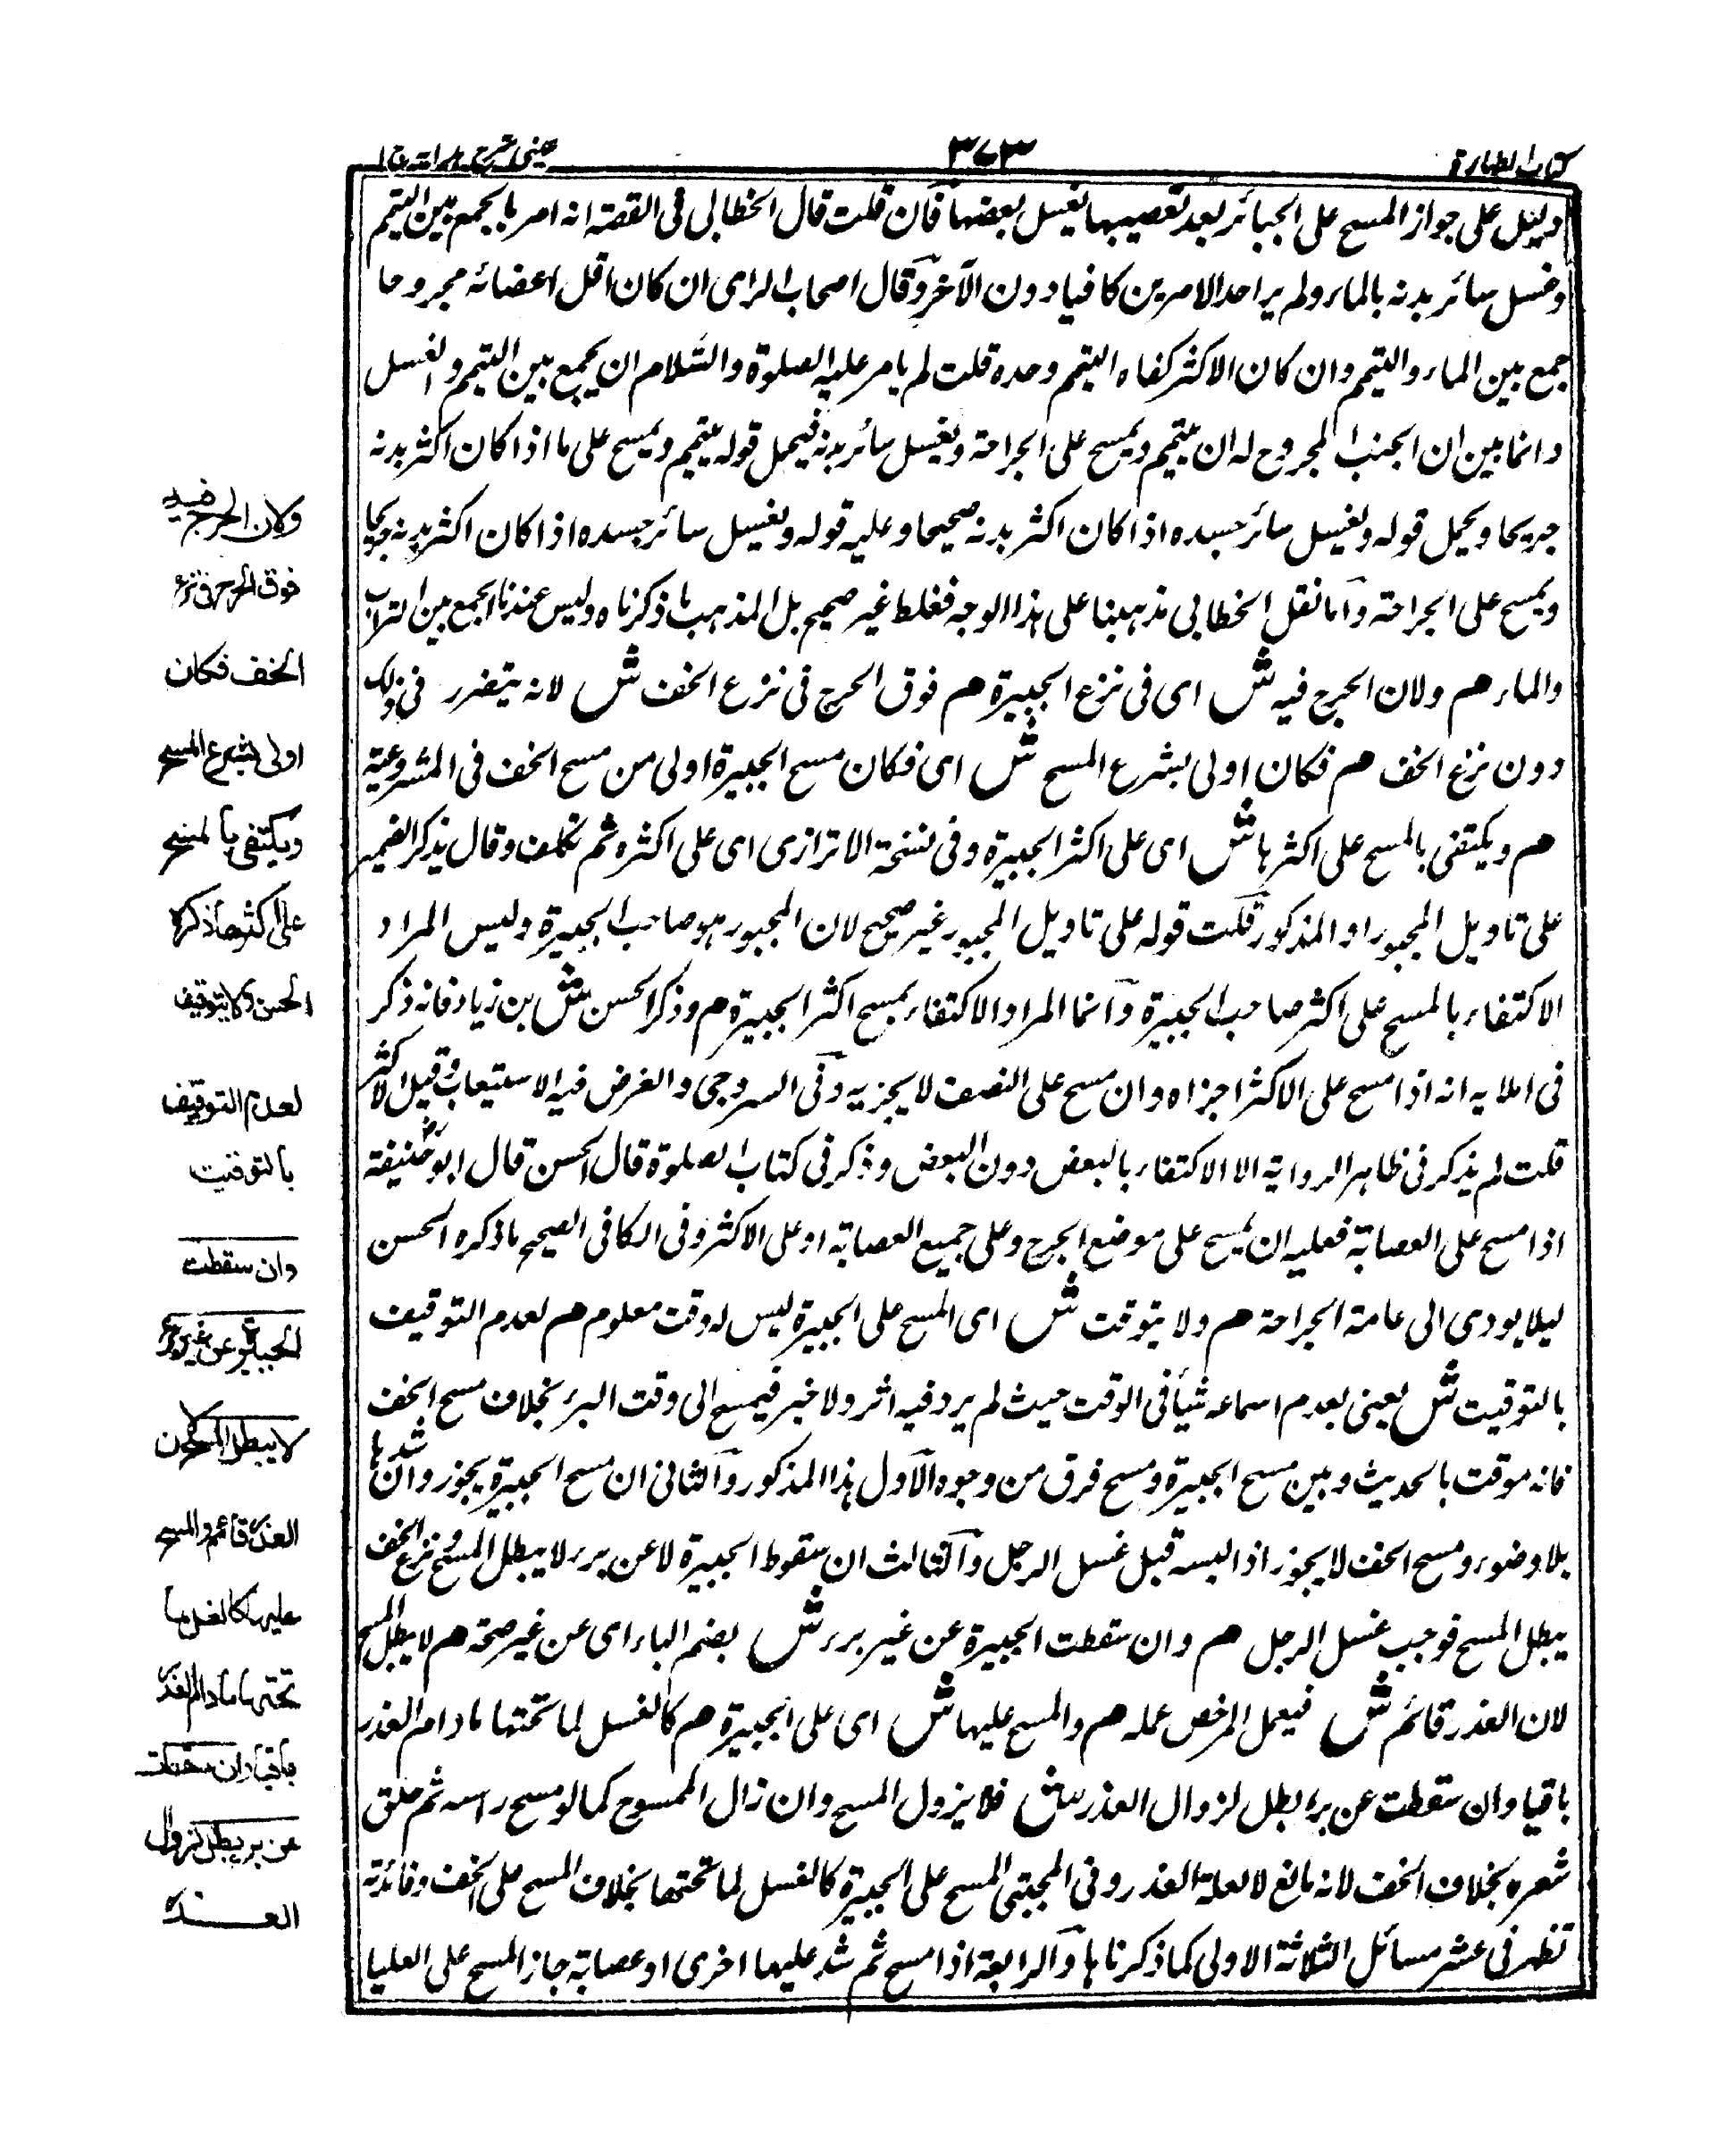 كتاب الطهارة
٣٧٣
عيني شرح هداية ج ١
دليل على جواز المسح على الجبائر بعد تعصيبها بغسل بعضها فان قلت قال الخطابي في القصة انه امر بالجمع بين التيمم
وغسل سائر بدنه بالماء ولم ير احد الامرين كافيا دون الآخر وقال اصحاب الراى ان كان اقل اعضائه مجروحا
جمع بين الماء والتيمم وان كان الاكثر كفاه التيمم وحده قلت لم يامر عليه الصلوة والسلام ان يجمع بين التيمم والغسل
وانما بين ان الجنب المجروح له ان يتيمم ويمسح على الجراحة ويغسل سائر بدنه فيحمل قوله يتيمم ويمسح على ما اذا كان اكثر بدنه
جريحا ويحمل قوله ويغسل سائر جسده اذا كان اكثر بدنه صحيحا وعليه قوله ويغسل سائر جسده اذا كان اكثر بدنه جريحا
ويمسح على الجراحة وأما نقل الخطابي مذهبنا على هذا الوجه فغلط غير صحيح بل المذهب ما ذكرناه وليس عندنا الجمع بين التراب
والماء هم ولان الحرج فيه ش اى فى نزع الجبيرة هم فوق الحرج فى نزع الخف ش لانه يتضرر فى ذلك
دون نزع الخف هم فكان اولى بشرع المسح ش اى فكان مسح الجبيرة اولى من مسح الخف فى المشروعية
هم ويكتفى بالمسح على اكثرها ش اى على اكثر الجبيرة وفى نسخة الاترازى اى على اكثره ثم تكلف وقال يذكر الضمير
على تاويل المجبور او المذكور قلت قوله على تاويل المجبور غير صحيح لان المجبور هو صاحب الجبيرة وليس المراد
الاكتفاء بالمسح على اكثر صاحب الجبيرة وانما المراد الاكتفاء بمسح اكثر الجبيرة هم وذكر الحسن ش بن زياد فانه ذكر
فى املايه انه اذا مسح على الاكثر اجزاه وان مسح على النصف لا يجزيه وفى السروجى والغرض فيه الاستيعاب وقيل الاكثر
قلت لم يذكر فى ظاهر الرواية الا الاكتفاء بالبعض دون البعض وذكر فى كتاب الصلوة قال الحسن قال ابو حنيفة
اذا مسح على العصابة فعليه ان يمسح على موضع الجرح وعلى جميع العصابة او على الاكثر وفى الكافى الصحيح ما ذكره الحسن
ليلا يودى الى عامة الجراحة هم ولا يتوقت ش اى المسح على الجبيرة ليس له وقت معلوم هم لعدم التوقيف
بالتوقيت ش يعنى بعدم اسماعه شيأ فى الوقت حيث لم يرد فيه اثر ولا خبر فيمسح الى وقت البرء بخلاف مسح الخف
فانه موقت بالحديث وبين مسح الجبيرة ومسح فرق من وجوه الآول هذا المذكور والثانى ان مسح الجبيرة يجوز وان شدها
بلا وضوء ومسح الخف لا يجوز اذا لبسه قبل غسل الرجل والثالث ان سقوط الجبيرة لا عن برء لا يبطل المسح ونزع الخف
يبطل المسح فوجب غسل الرجل هم وان سقطت الجبيرة عن غير برء ش بضم الباء اى عن غير صحة هم لا يبطل المسح
لان العذر قائم ش فيعمل المرخص عمله هم والمسح عليها ش اى على الجبيرة هم كالغسل لما تحتها ما دام العذر
باقيا وان سقطت عن برء بطل لزوال العذر ش فلا يزول المسح وان زال الممسوح كما لو مسح راسه ثم حلق
شعره بخلاف الخف لانه مانع لا لعلة العذر وفى المجتبى المسح على الجبيرة كالغسل لما تحتها بخلاف المسح على الخف وفائدته
تظهر فى عشر مسائل الثلاثة الاولى كما ذكرناها والرابعة اذا مسح ثم شد عليها اخرى او عصابة جاز المسح على العليا
ولان الحرج فيه
فوق الحرج فى نزع
الخف فكان
اولى بشرع المسح
ويكتفى بالمسح
على اكثرها ذكره
الحسن ولا يتوقف
لعدم التوقيف
بالتوقيت
وان سقطت
الجبيرة عن غير برء
لا يبطل المسح لان
العذر قائم والمسح
عليها كالغسل لما
تحتها ما دام العذر
باقيا وان سقطت
عن برء بطل لزوال
العذر